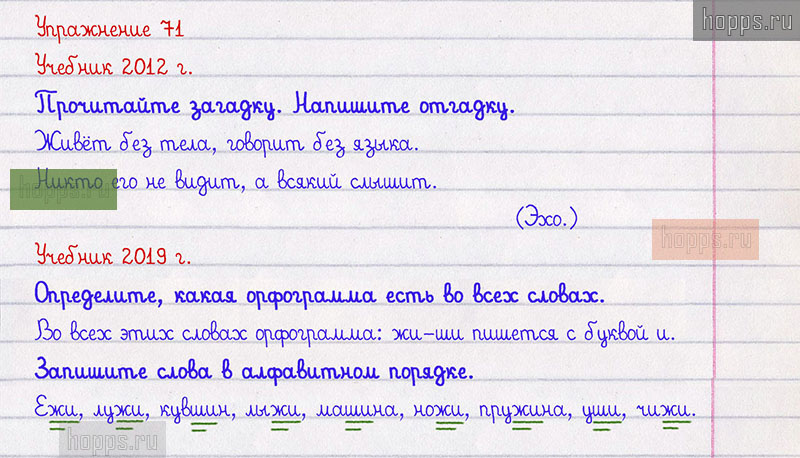 hopps.ru
Упражнение 71
Учебник 2012 г.
Прочитайте загадку. Напишите отгадку.
Живёт без тела, говорит без языка.
Никто его не видит, а всякий слышит.
hopps.ru
(Эхо.)
hopps.ru
Учебник 2019 г.
Определите, какая орфограмма есть во всех словах.
Во всех этих словах орфограмма: жи-ши пишется с буквой и.
Запишите слова в алфавитном порядке.
Ежи, лужи, кувшин, лыжи, машина, ножи, пружина, уши, чижи.
hopps.ru